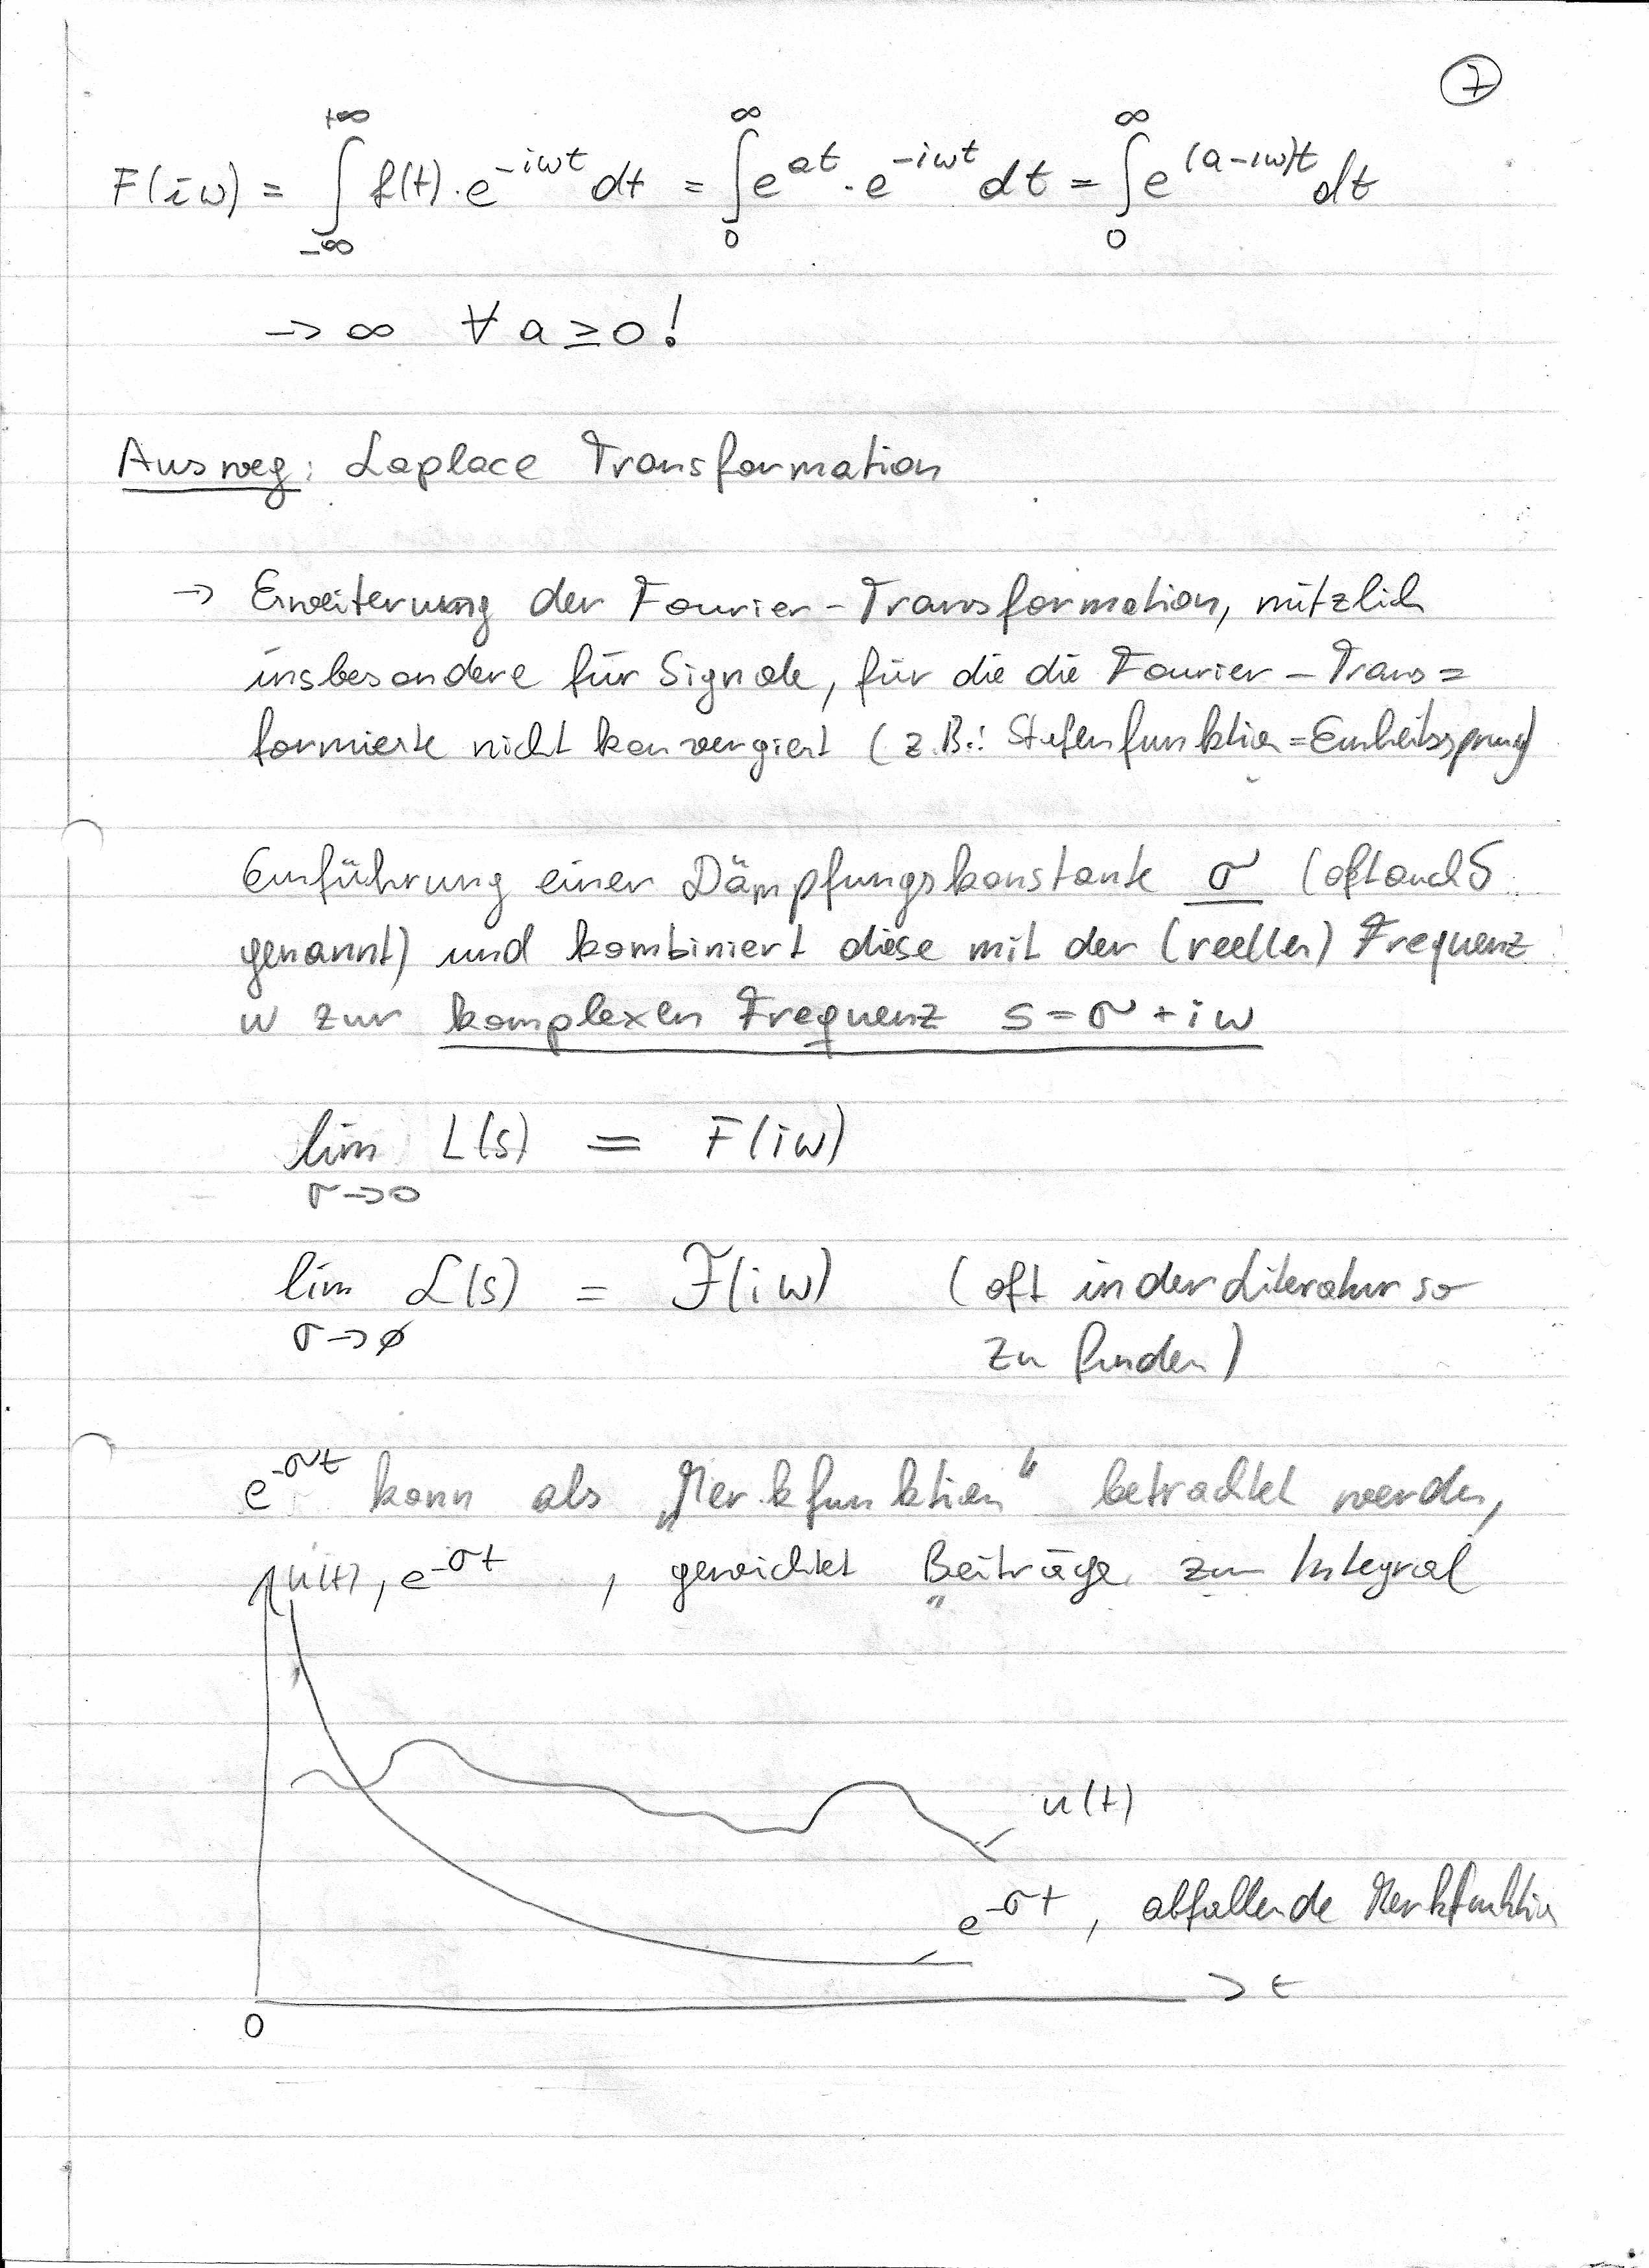 7
F(iω) = ∫_{-∞}^{+∞} f(t) · e^{-iωt} dt = ∫_0^∞ e^{at} · e^{-iωt} dt = ∫_0^∞ e^{(a-iω)t} dt
→ ∞ ∀ a ≥ 0 !
Ausweg: Laplace Transformation
→ Erweiterung der Fourier-Transformation, nützlich
insbesondere für Signale, für die die Fourier-Trans=
formierte nicht konvergiert (z.B.: Stufenfunktion=Einheitssprung)
Einführung einer Dämpfungskonstante σ (oft auch δ
genannt) und kombiniert diese mit der (reellen) Frequenz
ω zur komplexen Frequenz s = σ + iω
lim_{σ→0} L(s) = F(iω)
lim_{σ→0} ℒ(s) = ℱ(iω) (oft in der Literatur so
zu finden)
e^{-σt} kann als „Merkfunktion“ betrachtet werden,
u(t), e^{-σt} , gewichtet Beiträge zum Integral
u(t)
e^{-σt}, abfallende Merkfunktion
t
0